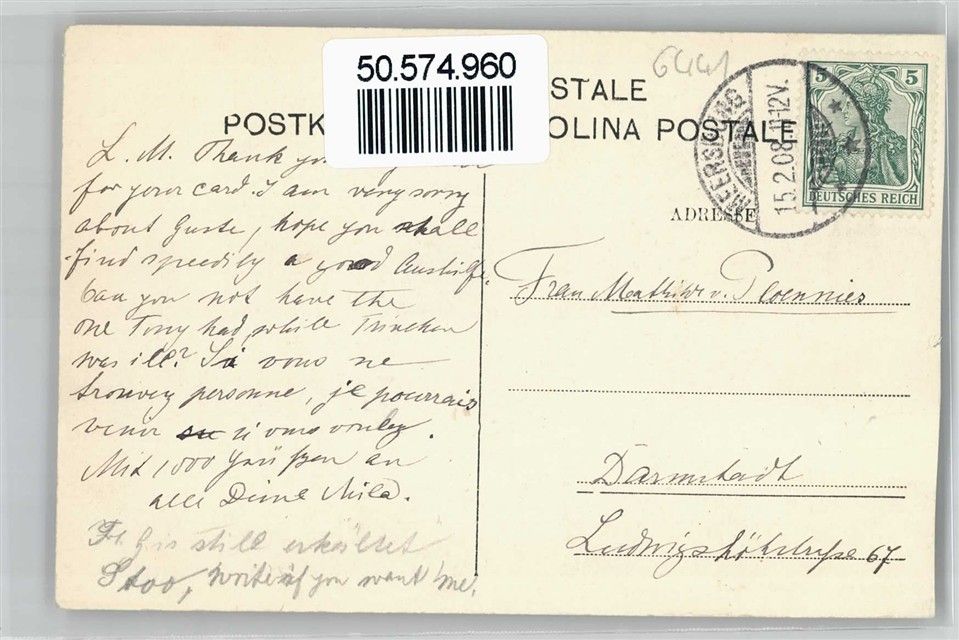 50.574.960
6441
STALE
POSTK
OLINA POSTALE
MEERSBURG
15.2.08. 11-12V.
5 5
DEUTSCHES REICH
ADRESSE
L. M. Thank you
for your card. I am very sorry
about Guste, hope you shall
find speedily a good Aushilfe.
Can you not have the
one Tony had, while Trinchen
was ill? Si vous ne
trouvez personne, je pourrais
venir si vous voulez.
Mit 1000 Grüßen an
alle Deine Mila.
is still erkältet
I too, write if you want me!
Frau Mathilde v. Ploennies
Darmstadt
Ludwigshöhstraße 67